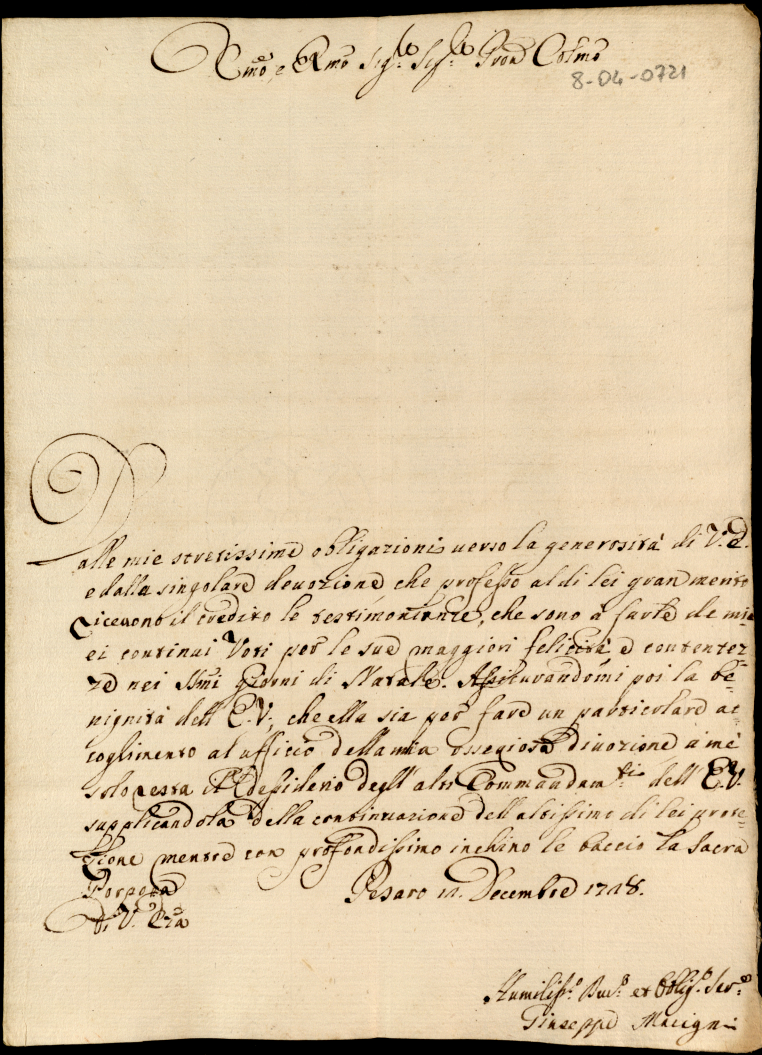 Emo, e Rmo Sigre Sigre Pron Colmo
8-04-0721
Dalle mie stretissime obligazioni verso la generosità di V.E.
e dalla singolare devozione che professo al di lei gran merito
ricevono il credito le testimonianze, che sono a farle de mi-
ei continui Voti per le sue maggiori felicità e contentez-
ze nei SSmi Giorni di Natale. Assicurandomi poi la be-
nignità dell' E.V., che ella sia per fare un particolare ac-
coglimento al ufficio della mia ossequiosa divozione à me
solo resta il desiderio degl' alti Commandamti dell' E.V.
supplicandola della continuazione dell' altissima di lei prote-
zione mentre con profondissimo inchino le baccio la Sacra
Porpora
Di V. Eza
Pesaro Decembre 1748.
Humilisso Devo et Obligo Serre
Giuseppe Macigni